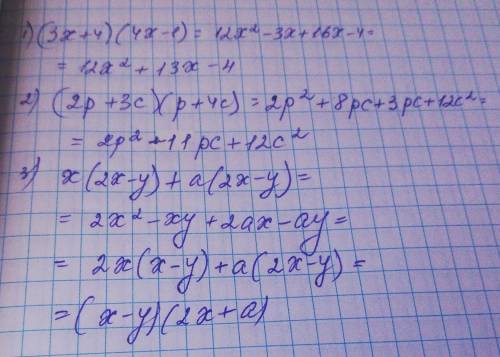 1) (3x+4)(4x-1) = 12x²-3x+16x-4=
= 12x²+13x-4
2) (2p+3c)(p+4c) = 2p²+8pc+3pc+12c²=
= 2p²+11pc+12c²
3) x(2x-y)+a(2x-y)=
= 2x²-xy+2ax-ay=
= 2x(x-y)+a(2x-y)=
=(x-y)(2x+a)